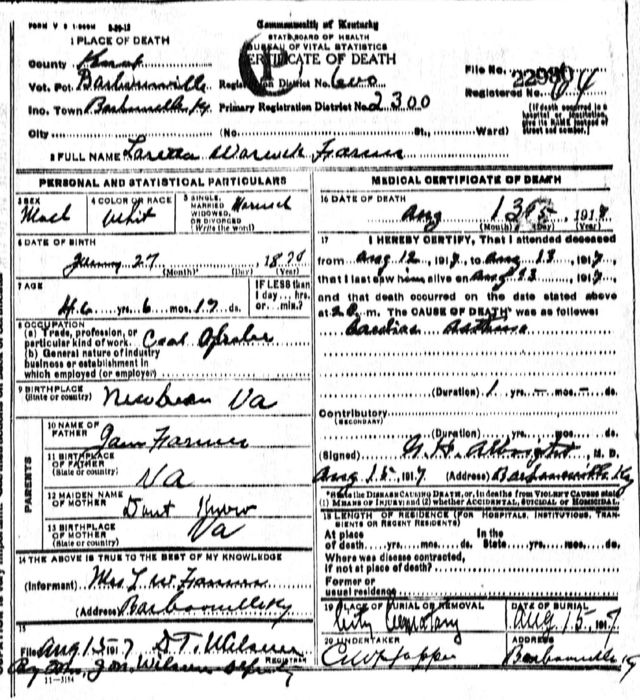 FORM V S 1-500M
Commonwealth of Kentucky
STATE BOARD OF HEALTH
BUREAU OF VITAL STATISTICS
CERTIFICATE OF DEATH
1 PLACE OF DEATH
County Knox
Vot. Pct. Barbourville Registration District No. 600
Ino. Town Barbourville, Ky Primary Registration District No. 2300
File No. 22980
Registered No. 74
(If death occurred in a hospital or institution, give its NAME instead of street and number.)
City (No. St., Ward)
2 FULL NAME Loretta Warwick Farmer
PERSONAL AND STATISTICAL PARTICULARS
3 SEX
Mael
4 COLOR OR RACE
Whit
5 SINGLE, MARRIED WIDOWED, OR DIVORCED (Write the word)
6 DATE OF BIRTH
27 (Month) (Day) (Year)
7 AGE
46 yrs. 6 mos. 17 ds.
IF LESS than 1 day... hrs. or... min.?
8 OCCUPATION
(a) Trade, profession, or particular kind of work. Coal
(b) General nature of industry business or establishment in which employed (or employer)
9 BIRTHPLACE (State or country) Va
PARENTS
10 NAME OF FATHER
Farmer
11 BIRTHPLACE OF FATHER (State or country)
Va
12 MAIDEN NAME OF MOTHER Dont Know
13 BIRTHPLACE OF MOTHER (State or country) Va
14 THE ABOVE IS TRUE TO THE BEST OF MY KNOWLEDGE
(Informant) Mrs L W Farmer
(Address) Barbourville Ky
15
Filed Aug 15 1917 D.T. Wilson
REGISTRAR
11-3184
MEDICAL CERTIFICATE OF DEATH
16 DATE OF DEATH
Aug 13 1917
(Month) (Day) (Year)
17 I HEREBY CERTIFY, That I attended deceased
from Aug 12, 1917, to Aug 13, 1917,
that I last saw him alive on Aug 13, 1917,
and that death occurred on the date stated above
at m. The CAUSE OF DEATH* was as follows:
Cardiac Asthma
(Duration) 1 yrs. – mos. – ds.
Contributory
(SECONDARY)
(Duration) yrs. mos. ds.
(Signed) G.H. Albright M. D.
Aug 15, 1917 (Address) Barbourville, Ky
*State the DISEASE CAUSING DEATH, or, in deaths from VIOLENT CAUSES state (1) MEANS OF INJURY; and (2) whether ACCIDENTAL, SUICIDAL or HOMICIDAL.
18 LENGTH OF RESIDENCE (FOR HOSPITALS, INSTITUTIONS, TRANSIENTS OR RECENT RESIDENTS)
At place of death yrs. mos. ds. In the State yrs. mos. ds.
Where was disease contracted, if not at place of death?
Former or usual residence
19 PLACE OF BURIAL OR REMOVAL
City Cemetary
DATE OF BURIAL
Aug 15, 1917
20 UNDERTAKER
ADDRESS
Barbourville, Ky